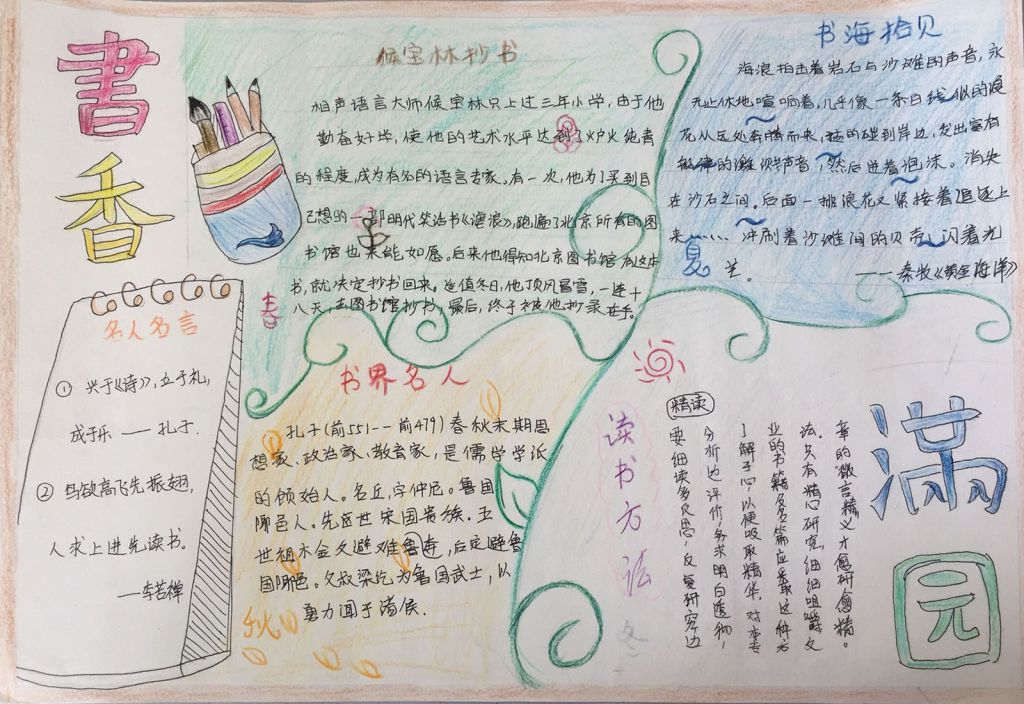 書
香
满
园
候宝林抄书
相声语言大师候宝林只上过三年小学,由于他
勤奋好学,使他的艺术水平达到了炉火纯青
的程度,成为有名的语言专家。有一次,他为了买到自
己想的一部明代笑话书《谑浪》,跑遍了北京所有的图
书馆也未能如愿。后来他得知北京图书馆有这本
书,就决定抄书回来。适值冬日,他顶风冒雪,一连十
八天,去图书馆抄书,最后,终于被他抄录在手。
春
书海拾贝
海浪拍击着岩石与沙滩的声音,永
无止休地喧响着,几乎像一条白线似的浪
花从远处奔腾而来,猛的碰到岸边,发出富有
的声音,然后迸着泡沫。消失
在沙石之间。后面一排浪花又紧接着追逐上
来…… 冲刷着沙滩间的贝壳,闪着光
芒。
——秦牧《黄金海洋》
夏
名人名言
① 兴于《诗》,立于礼,
成于乐 —— 孔子.
② 鸟欲高飞先振翅,
人求上进先读书。
——李苦禅
书界名人
孔子(前551--前479)春秋末期思
想家、政治家、教育家,是儒学学派
的创始人。名丘,字仲尼。鲁国
陬邑人。先世宋国贵族.五
世祖木金父避难鲁奔,后定避鲁
国陬邑。父叔梁纥为鲁国武士,以
勇力闻于诸侯.
秋
读书方法
精读
要细读多反思,反复研究边
分析边评价,务求明白透彻,
了解于心,以便吸取精华.对本专
业的书籍及名篇应采取这种方
法.只有精心研究,细细咀嚼文
章的"微言精义"才愈研愈精。
冬